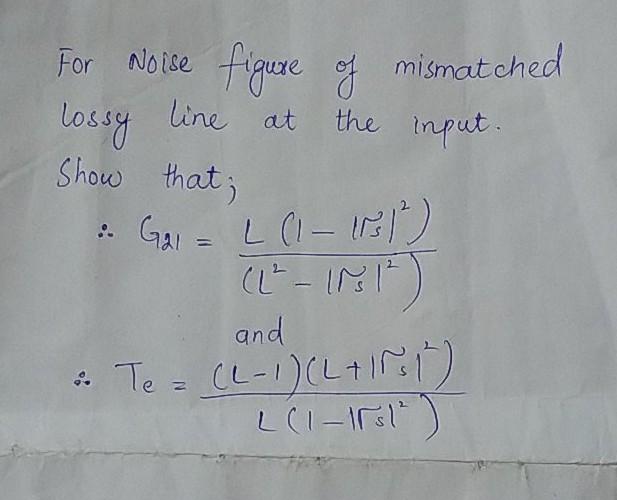 For Noise figure of mismatched
lossy line at the input.
Show that;
∴ G₂₁ = L (1 - |Γs|²)
(L² - |Γs|²)
and
∴ Te = (L-1)(L+|Γs|²)
L(1-|Γs|²)